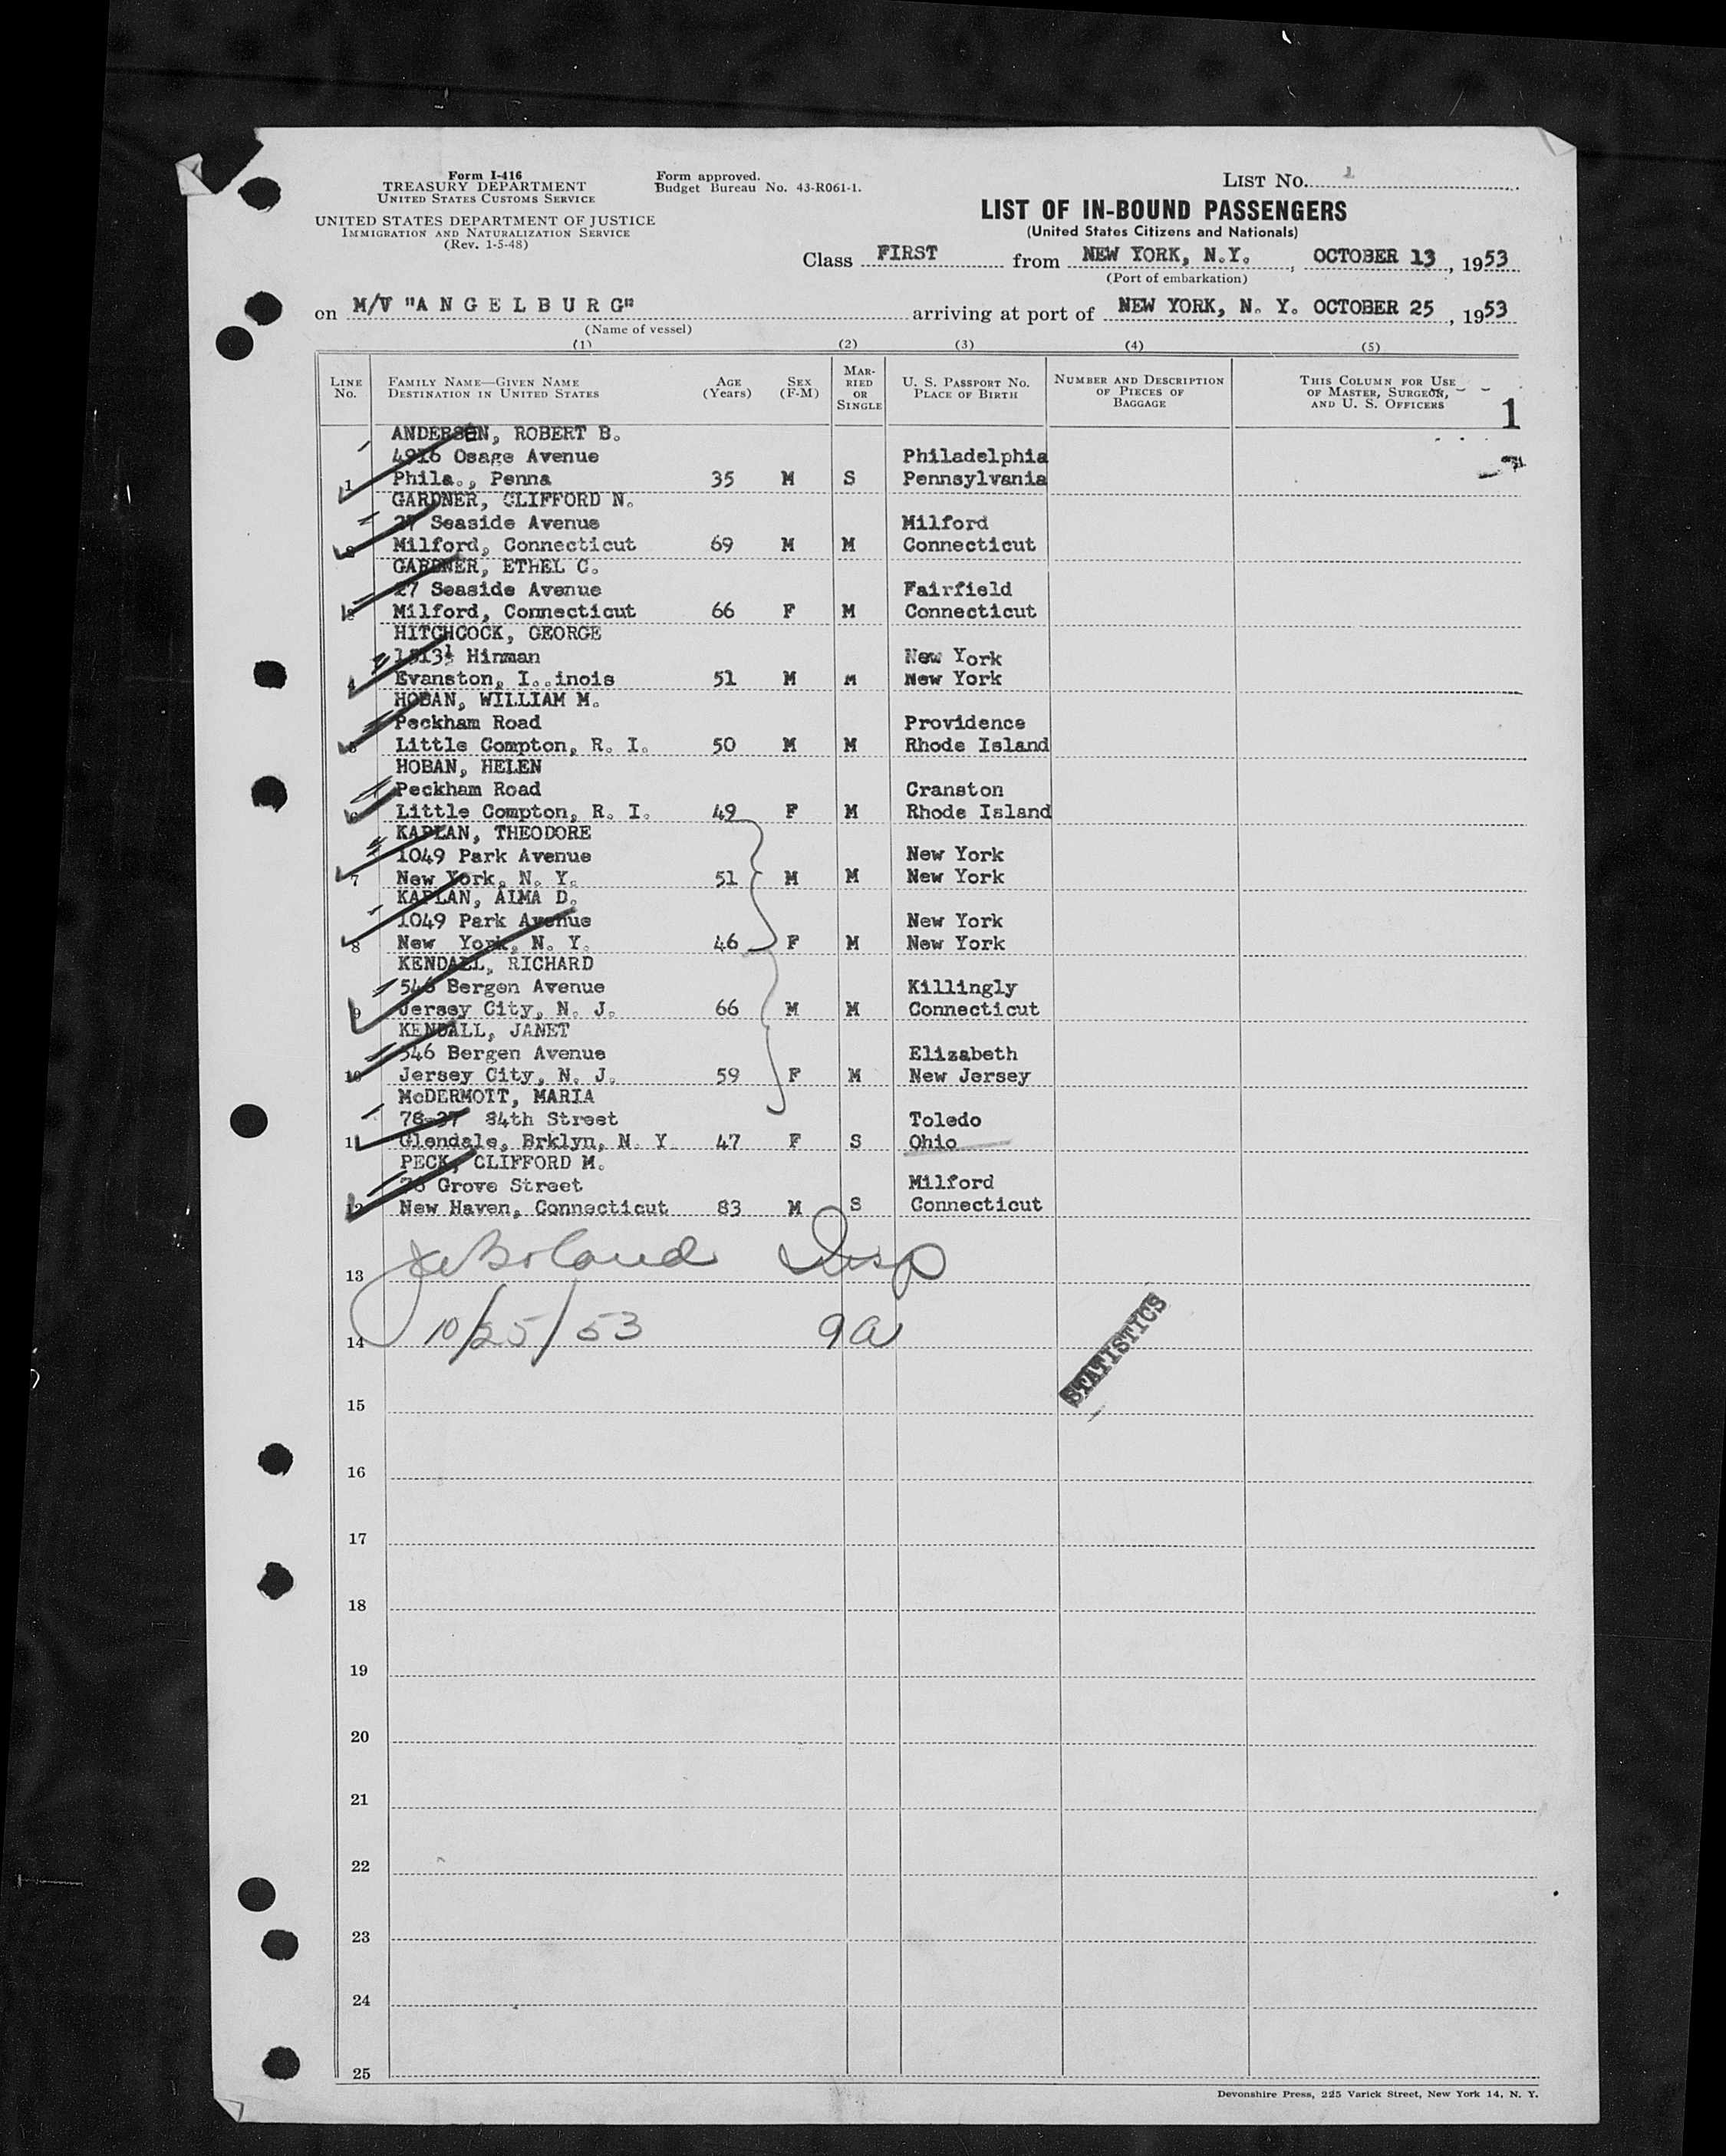 Form I-416
TREASURY DEPARTMENT
UNITED STATES CUSTOMS SERVICE
UNITED STATES DEPARTMENT OF JUSTICE
IMMIGRATION AND NATURALIZATION SERVICE
(Rev. 1-5-48)
Form approved.
Budget Bureau No. 43-R061-1.
LIST NO. 1
LIST OF IN-BOUND PASSENGERS
(United States Citizens and Nationals)
Class FIRST from NEW YORK, N.Y., OCTOBER 13, 1953
(Port of embarkation)
on M/V "A N G E L B U R G" arriving at port of NEW YORK, N. Y. OCTOBER 25, 1953
(Name of vessel)
(1) (2) (3) (4) (5)
LINE NO.
FAMILY NAME—GIVEN NAME
DESTINATION IN UNITED STATES
AGE (Years)
SEX (F-M)
MARRIED OR SINGLE
U. S. PASSPORT NO.
PLACE OF BIRTH
NUMBER AND DESCRIPTION OF PIECES OF BAGGAGE
THIS COLUMN FOR USE OF MASTER, SURGEON, AND U. S. OFFICERS
1
ANDERSEN, ROBERT B.
4916 Osage Avenue Philadelphia
1 Phila., Penna 35 M S Pennsylvania
GARDNER, CLIFFORD N.
27 Seaside Avenue Milford
2 Milford, Connecticut 69 M M Connecticut
GARDNER, ETHEL C.
27 Seaside Avenue Fairfield
3 Milford, Connecticut 66 F M Connecticut
HITCHCOCK, GEORGE
1513½ Hinman New York
4 Evanston, I..inois 51 M M New York
HOBAN, WILLIAM M.
Peckham Road Providence
5 Little Compton, R. I. 50 M M Rhode Island
HOBAN, HELEN
Peckham Road Cranston
6 Little Compton, R. I. 49 F M Rhode Island
KAPLAN, THEODORE
1049 Park Avenue New York
7 New York, N. Y. 51 M M New York
KAPLAN, ALMA D.
1049 Park Avenue New York
8 New York, N. Y. 46 F M New York
KENDALL, RICHARD
546 Bergen Avenue Killingly
9 Jersey City, N. J. 66 M M Connecticut
KENDALL, JANET
546 Bergen Avenue Elizabeth
10 Jersey City, N. J. 59 F M New Jersey
McDERMOTT, MARIA
78-37 84th Street Toledo
11 Glendale, Brklyn, N. Y 47 F S Ohio
PECK, CLIFFORD M.
Grove Street Milford
12 New Haven, Connecticut 83 M S Connecticut
13 Boland Insp
14 10/25/53 9a
STATISTICS
15
16
17
18
19
20
21
22
23
24
25
Devonshire Press, 225 Varick Street, New York 14, N. Y.